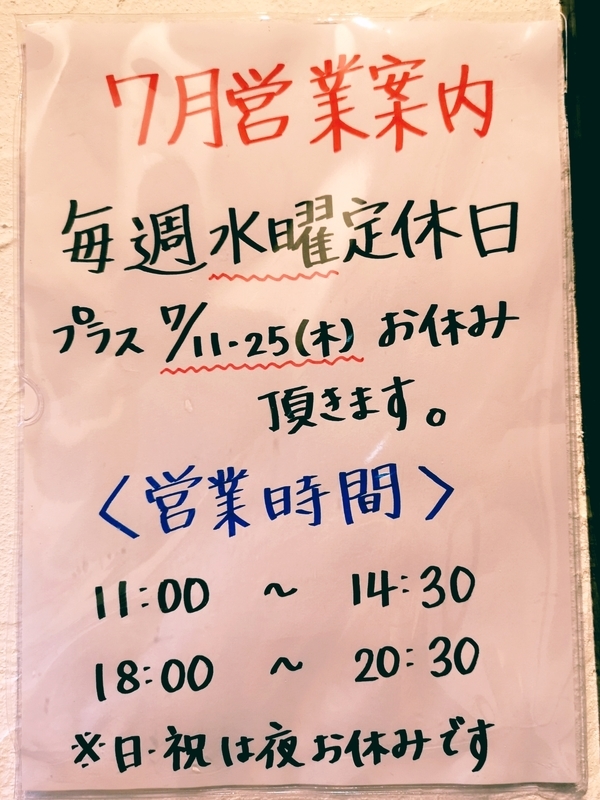 7月営業案内
毎週水曜定休日
プラス 7/11・25(木) お休み
頂きます。
〈営業時間〉
11:00 ~ 14:30
18:00 ~ 20:30
※日・祝は夜お休みです